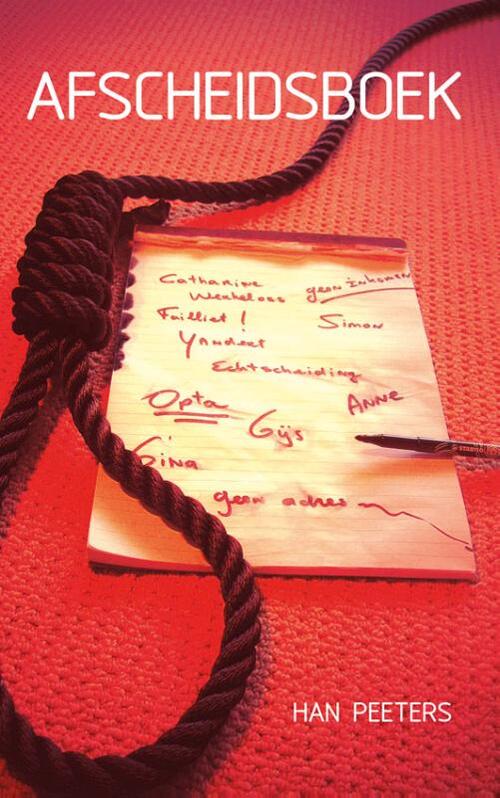 AFSCHEIDSBOEK
Catharine geen inkomen
Werkeloos
Failliet! Simon
Yandeet
Echtscheiding
Opta Gijs ANNE
Gina
geen adres
HAN PEETERS